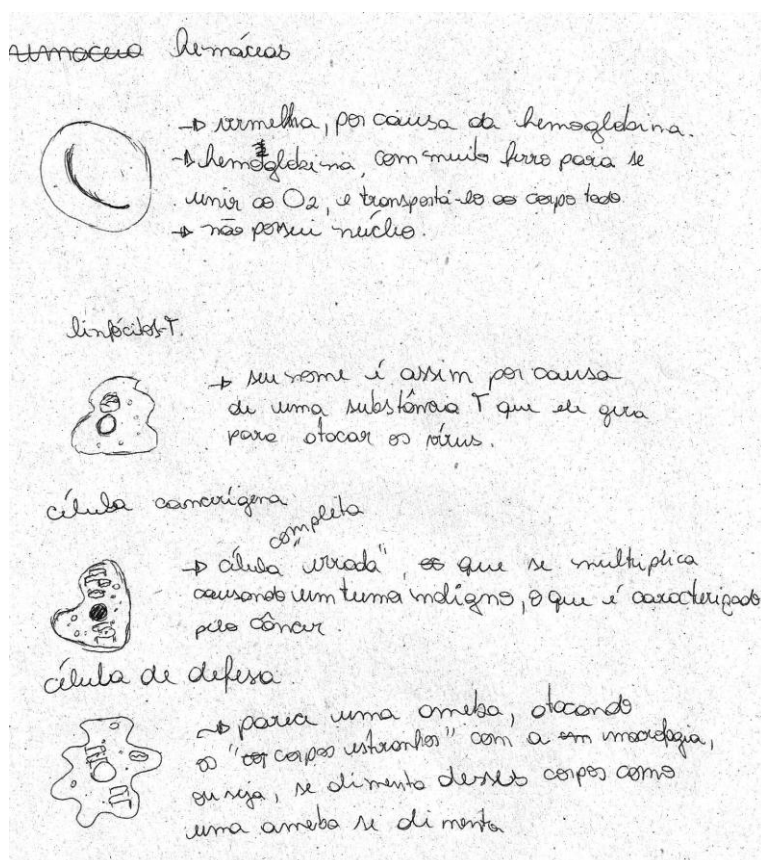 hemáceas
→ vermelha, por causa da hemoglobina.
→ hemoglobina, com muito ferro para se
unir ao O2, e transportá-lo ao corpo todo.
→ não possui núcleo.
linfócitos-T.
→ seu nome é assim por causa
de uma substância T que ele gera
para atacar os vírus.
célula cancerígena
completa
→ célula "errada", que se multiplica
causando um tumor maligno, o que é caracterizado
pelo câncer.
célula de defesa
→ parece uma ameba, atacando
os "corpos estranhos" com a macrofagia,
ou seja, se alimenta desses corpos como
uma ameba se alimenta